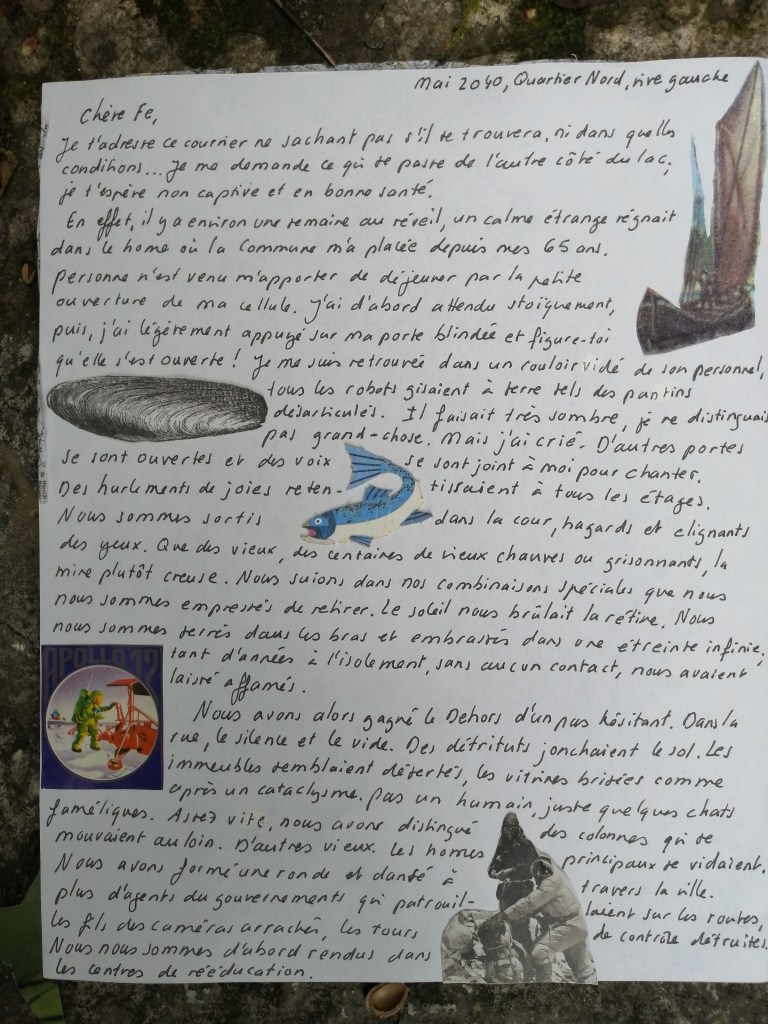 Mai 2040, Quartier Nord, rive gauche
Chère Fe,
Je t'adresse ce courrier ne sachant pas s'il te trouvera, ni dans quelles
conditions... Je me demande ce qui se passe de l'autre côté du lac,
je t'espère non captive et en bonne santé.
En effet, il y a environ une semaine au réveil, un calme étrange régnait
dans le home où la Commune m'a placée depuis mes 65 ans.
Personne n'est venu m'apporter de déjeuner par la petite
ouverture de ma cellule. J'ai d'abord attendu stoïquement,
puis, j'ai légèrement appuyé sur ma porte blindée et figure-toi
qu'elle s'est ouverte ! Je me suis retrouvée dans un couloir vidé de son personnel,
tous les robots gisaient à terre tels des pantins
désarticulés. Il faisait très sombre, je ne distinguais
pas grand-chose. Mais j'ai crié. D'autres portes
se sont ouvertes et des voix se sont joint à moi pour chanter.
Des hurlements de joies reten- tissaient à tous les étages.
Nous sommes sortis dans la cour, hagards et clignants
des yeux. Que des vieux, des centaines de vieux chauves ou grisonnants, la
mine plutôt creuse. Nous suions dans nos combinaisons spéciales que nous
nous sommes empressés de retirer. Le soleil nous brûlait la rétine. Nous
nous sommes serrés dans les bras et embrassés dans une étreinte infinie,
tant d'années à l'isolement, sans aucun contact, nous avaient
laissé affamés.
APOLLO 12
Nous avons alors gagné le Dehors d'un pas hésitant. Dans la
rue, le silence et le vide. Des détrituts jonchaient le sol. Les
immeubles semblaient désertés, les vitrines brisées comme
après un cataclysme. Pas un humain, juste quelques chats
faméliques. Assez vite, nous avons distingué des colonnes qui se
mouvaient au loin. D'autres vieux. Les homes principaux se vidaient.
Nous avons formé une ronde et dansé à travers la ville.
plus d'agents du gouvernements qui patrouil- laient sur les routes,
les fils des caméras arrachés, les tours de contrôle détruites.
Nous nous sommes d'abord rendus dans
les centres de rééducation.